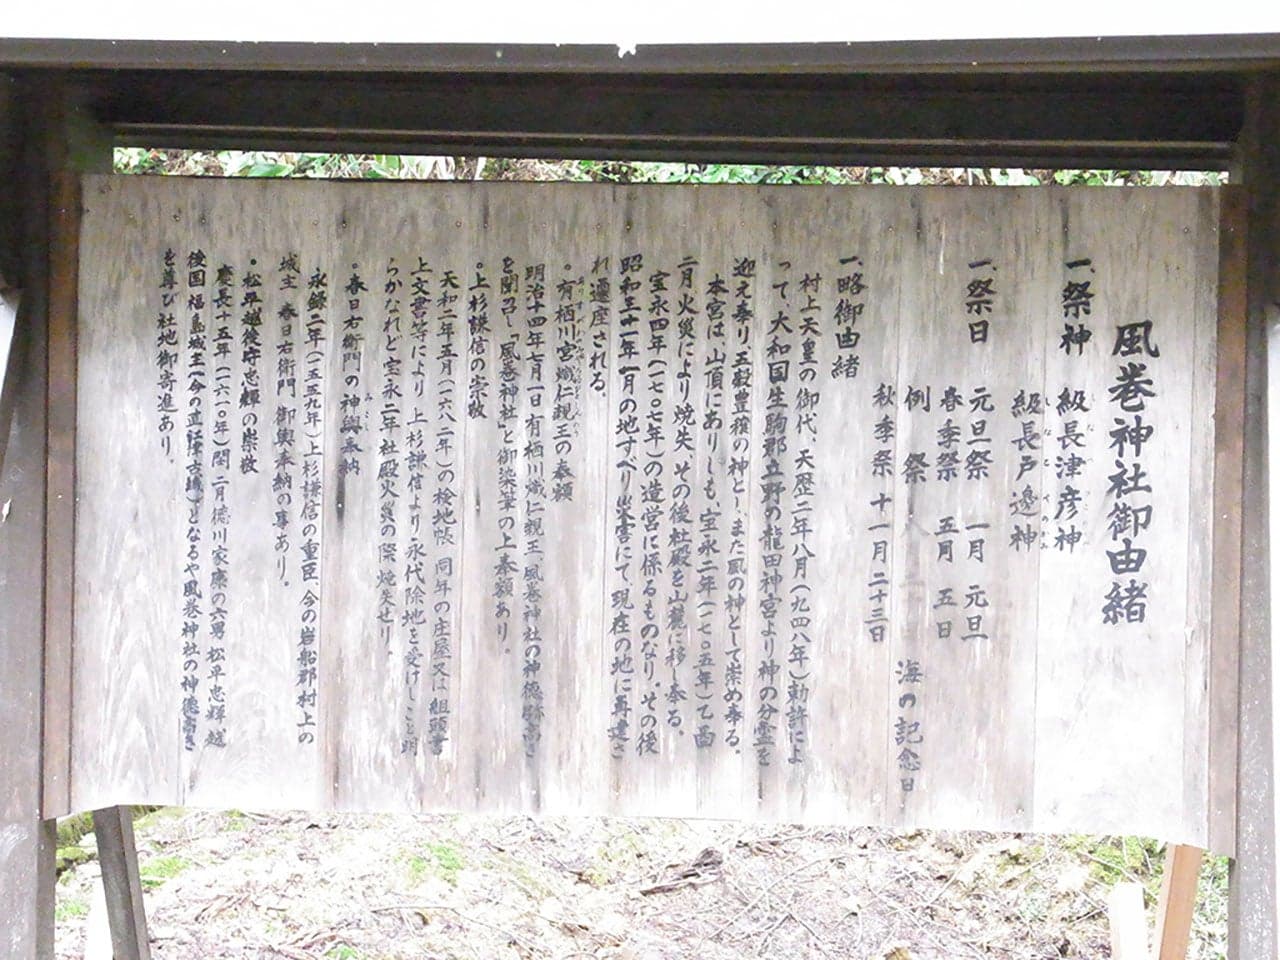 風巻神社御由緒
一、祭神 級長津彦神
級長戸邊神
一、祭日 元旦祭 一月 元旦
春季祭 五月 五日
例 祭 海の記念日
秋季祭 十一月二十三日
一、略御由緒
村上天皇の御代、天歴二年八月(九四八年)勅許によ
って、大和国生駒郡立野の龍田神宮より神の分霊を
迎え奉り五穀豊穣の神とし、また風の神として崇め奉る。
本宮は、山頂にありしも、宝永二年(一七〇五年)乙酉
二月、火災により焼失、その後社殿を山麓に移し奉る。
宝永四年(一七〇七年)の造営に係るものなり。その後
昭和三十一年一月の地すべり災害にて、現在の地に再建さ
れ遷座される。
。有栖川宮熾仁親王の奉額
明治十四年七月一日有栖川熾仁親王、風巻神社の神徳弥高き
を聞召し「風巻神社」と御染筆の上奉額あり。
。上杉謙信の崇敬
天和二年五月(一六八二年)の検地帳 同年の庄屋又は組頭書
上文書等により 上杉謙信より永代除地を受けしこと明
らかなれど宝永二年社殿火災の際焼失せり。
。春日右衛門の神輿奉納
永録二年(一五五九年)上杉謙信の重臣、今の岩船郡村上の
城主 春日右衛門 御輿奉納の事あり。
。松平越後守忠輝の崇敬
慶長十五年(一六一〇年)閏二月徳川家康の六男松平忠輝越
後国福島城主(今の直江津古城)となるや風巻神社の神徳高き
を尊び社地御寄進あり。